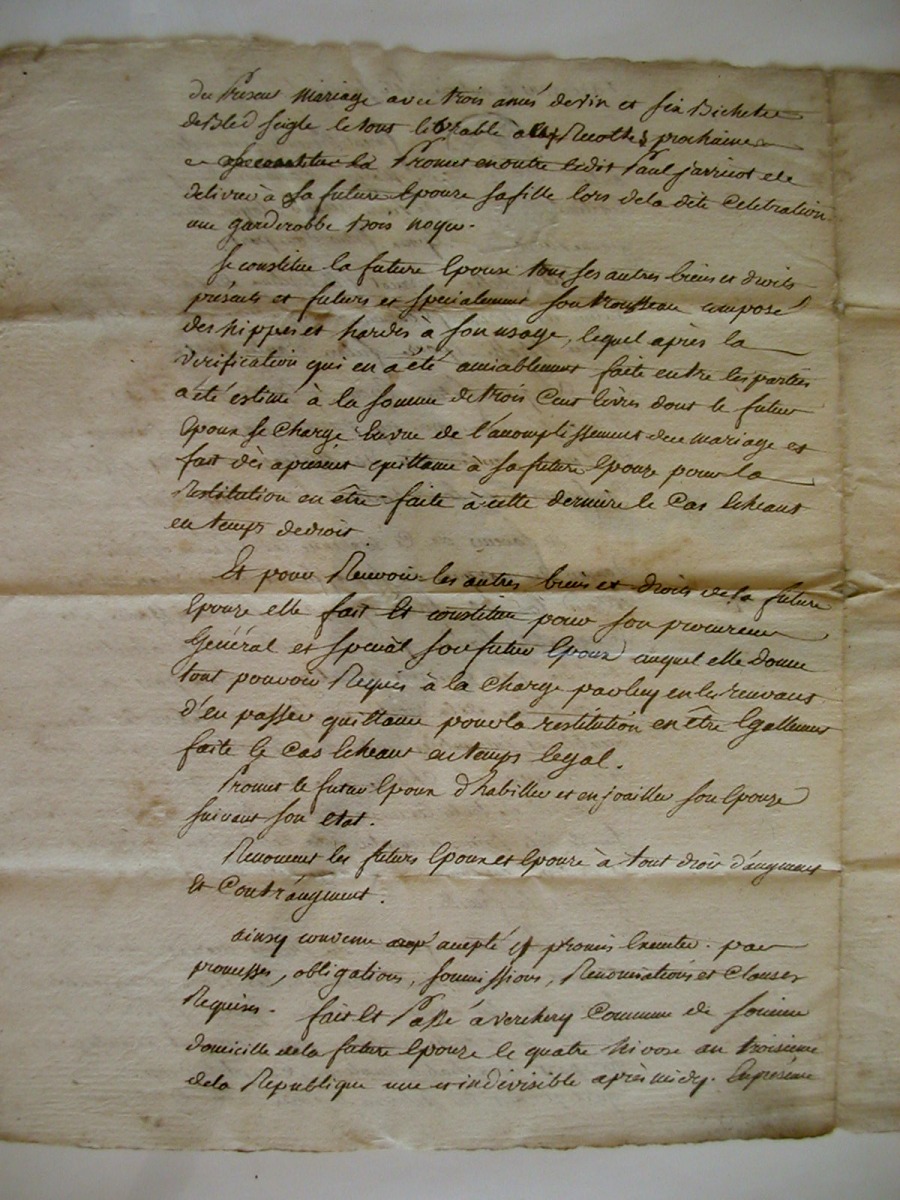 du present mariage avec trois anés de vin et six Bichetes
de Bled seigle le tout livrable aux Recoltes prochaines
Promet en outre ledit Paul jarricot de
delivrer à sa future Epouze sa fille lors de la dite Celebration
une garderobbe Bois noyer.
Se constitue la future Epouse tous ses autres biens et droits
présents et futurs et specialement son trousseau composé
des nippes et hardes à son usage, lequel après la
verification qui en a été amiablement faite entre les parties
a été estimé à la somme de trois Cent livres dont le futur
Epoux se Charge En vue de l'accomplissement du mariage et
fait dès apresent quittance à sa future Epouze pour la
Restitution en être faite à cette derniere le Cas Echeant
en temps de droit
Et pour Recevoir les autres biens et droits de la future
Epouze elle fait Et constitue pour son procureur
Général et special son futur Epoux auquel elle donne
tout pouvoir Requis à la Charge par luy en les recevant
d'en passer quittance pour la restitution en être Egallement
faite le Cas Echeant en temps legal.
Promet le futur Epoux d'habiller et enjoailler son Epouze
suivant son etat.
Renoncent les futurs Epoux et Epouze à tout droit d'augment
Et Contr'augment.
ainsy convenu accepté et promis Executer. par
promesses, obligations, soumissions, Renonciations et Clauses
Requises. fait Et Passé à verchery Commune de
domicille de la future Epouze le quatre Nivose an troisieme
de la Republique une et indivisible après midy. En presence